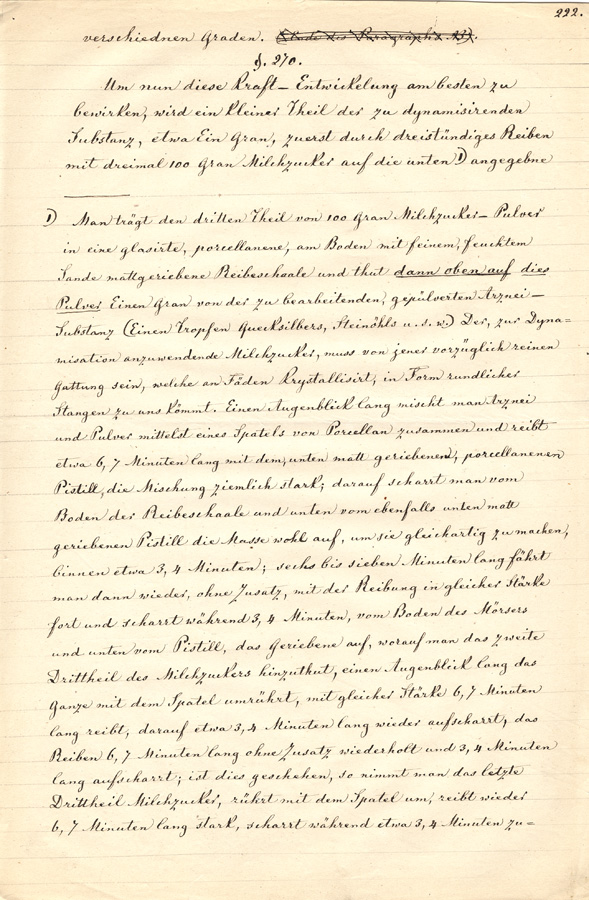 222.
verschiednen Graden. (Ende des Paragraph's 27).
§. 270.
Um nun diese Kraft-Entwickelung am besten zu
bewirken, wird ein kleiner Theil der zu dynamisirenden
Substanz, etwa Ein Gran, zuerst durch dreistündiges Reiben
mit dreimal 100 Gran Milchzucker auf die unten 1) angegebne
1) Man trägt den dritten Theil von 100 Gran Milchzucker-Pulver
in eine glasirte, porcellanene, am Boden mit feinem, feuchtem
Sande mattgeriebene Reibeschaale und thut dann oben auf dies
Pulver Einen Gran von der zu bearbeitenden, gepülverten Arznei-
Substanz (Einen Tropfen Quecksilbers, Steinöhls u.s.w.) Der, zur Dyna=
misation anzuwendende Milchzucker, muss von jener vorzüglich reinen
Gattung sein, welche an Fäden krystallisirt, in Form rundlicher
Stangen zu uns kömmt. Einen Augenblick lang mischt man Arznei
und Pulver mittelst eines Spatels von Porcellan zusammen und reibt
etwa 6, 7 Minuten lang mit dem, unten matt geriebenen, porcellanenen
Pistill, die Mischung ziemlich stark; darauf scharrt man vom
Boden der Reibeschaale und unten vom ebenfalls unten matt
geriebenen Pistill die Masse wohl auf, um sie gleichartig zu machen,
binnen etwa 3, 4 Minuten; sechs bis sieben Minuten lang fährt
man dann wieder, ohne Zusatz, mit der Reibung in gleicher Stärke
fort und scharrt während 3, 4 Minuten, vom Boden des Mörsers
und unten vom Pistill, das Geriebene auf, worauf man das zweite
Drittheil des Milchzuckers hinzuthut, einen Augenblick lang das
Ganze mit dem Spatel umrührt, mit gleicher Stärke 6, 7 Minuten
lang reibt, darauf etwa 3, 4 Minuten lang wieder aufscharrt, das
Reiben 6, 7 Minuten lang ohne Zusatz wiederholt und 3, 4 Minuten
lang aufscharrt; ist dies geschehen, so nimmt man das letzte
Drittheil Milchzucker, rührt mit dem Spatel um, reibt wieder
6, 7 Minuten lang stark, scharrt während etwa 3, 4 Minuten zu=